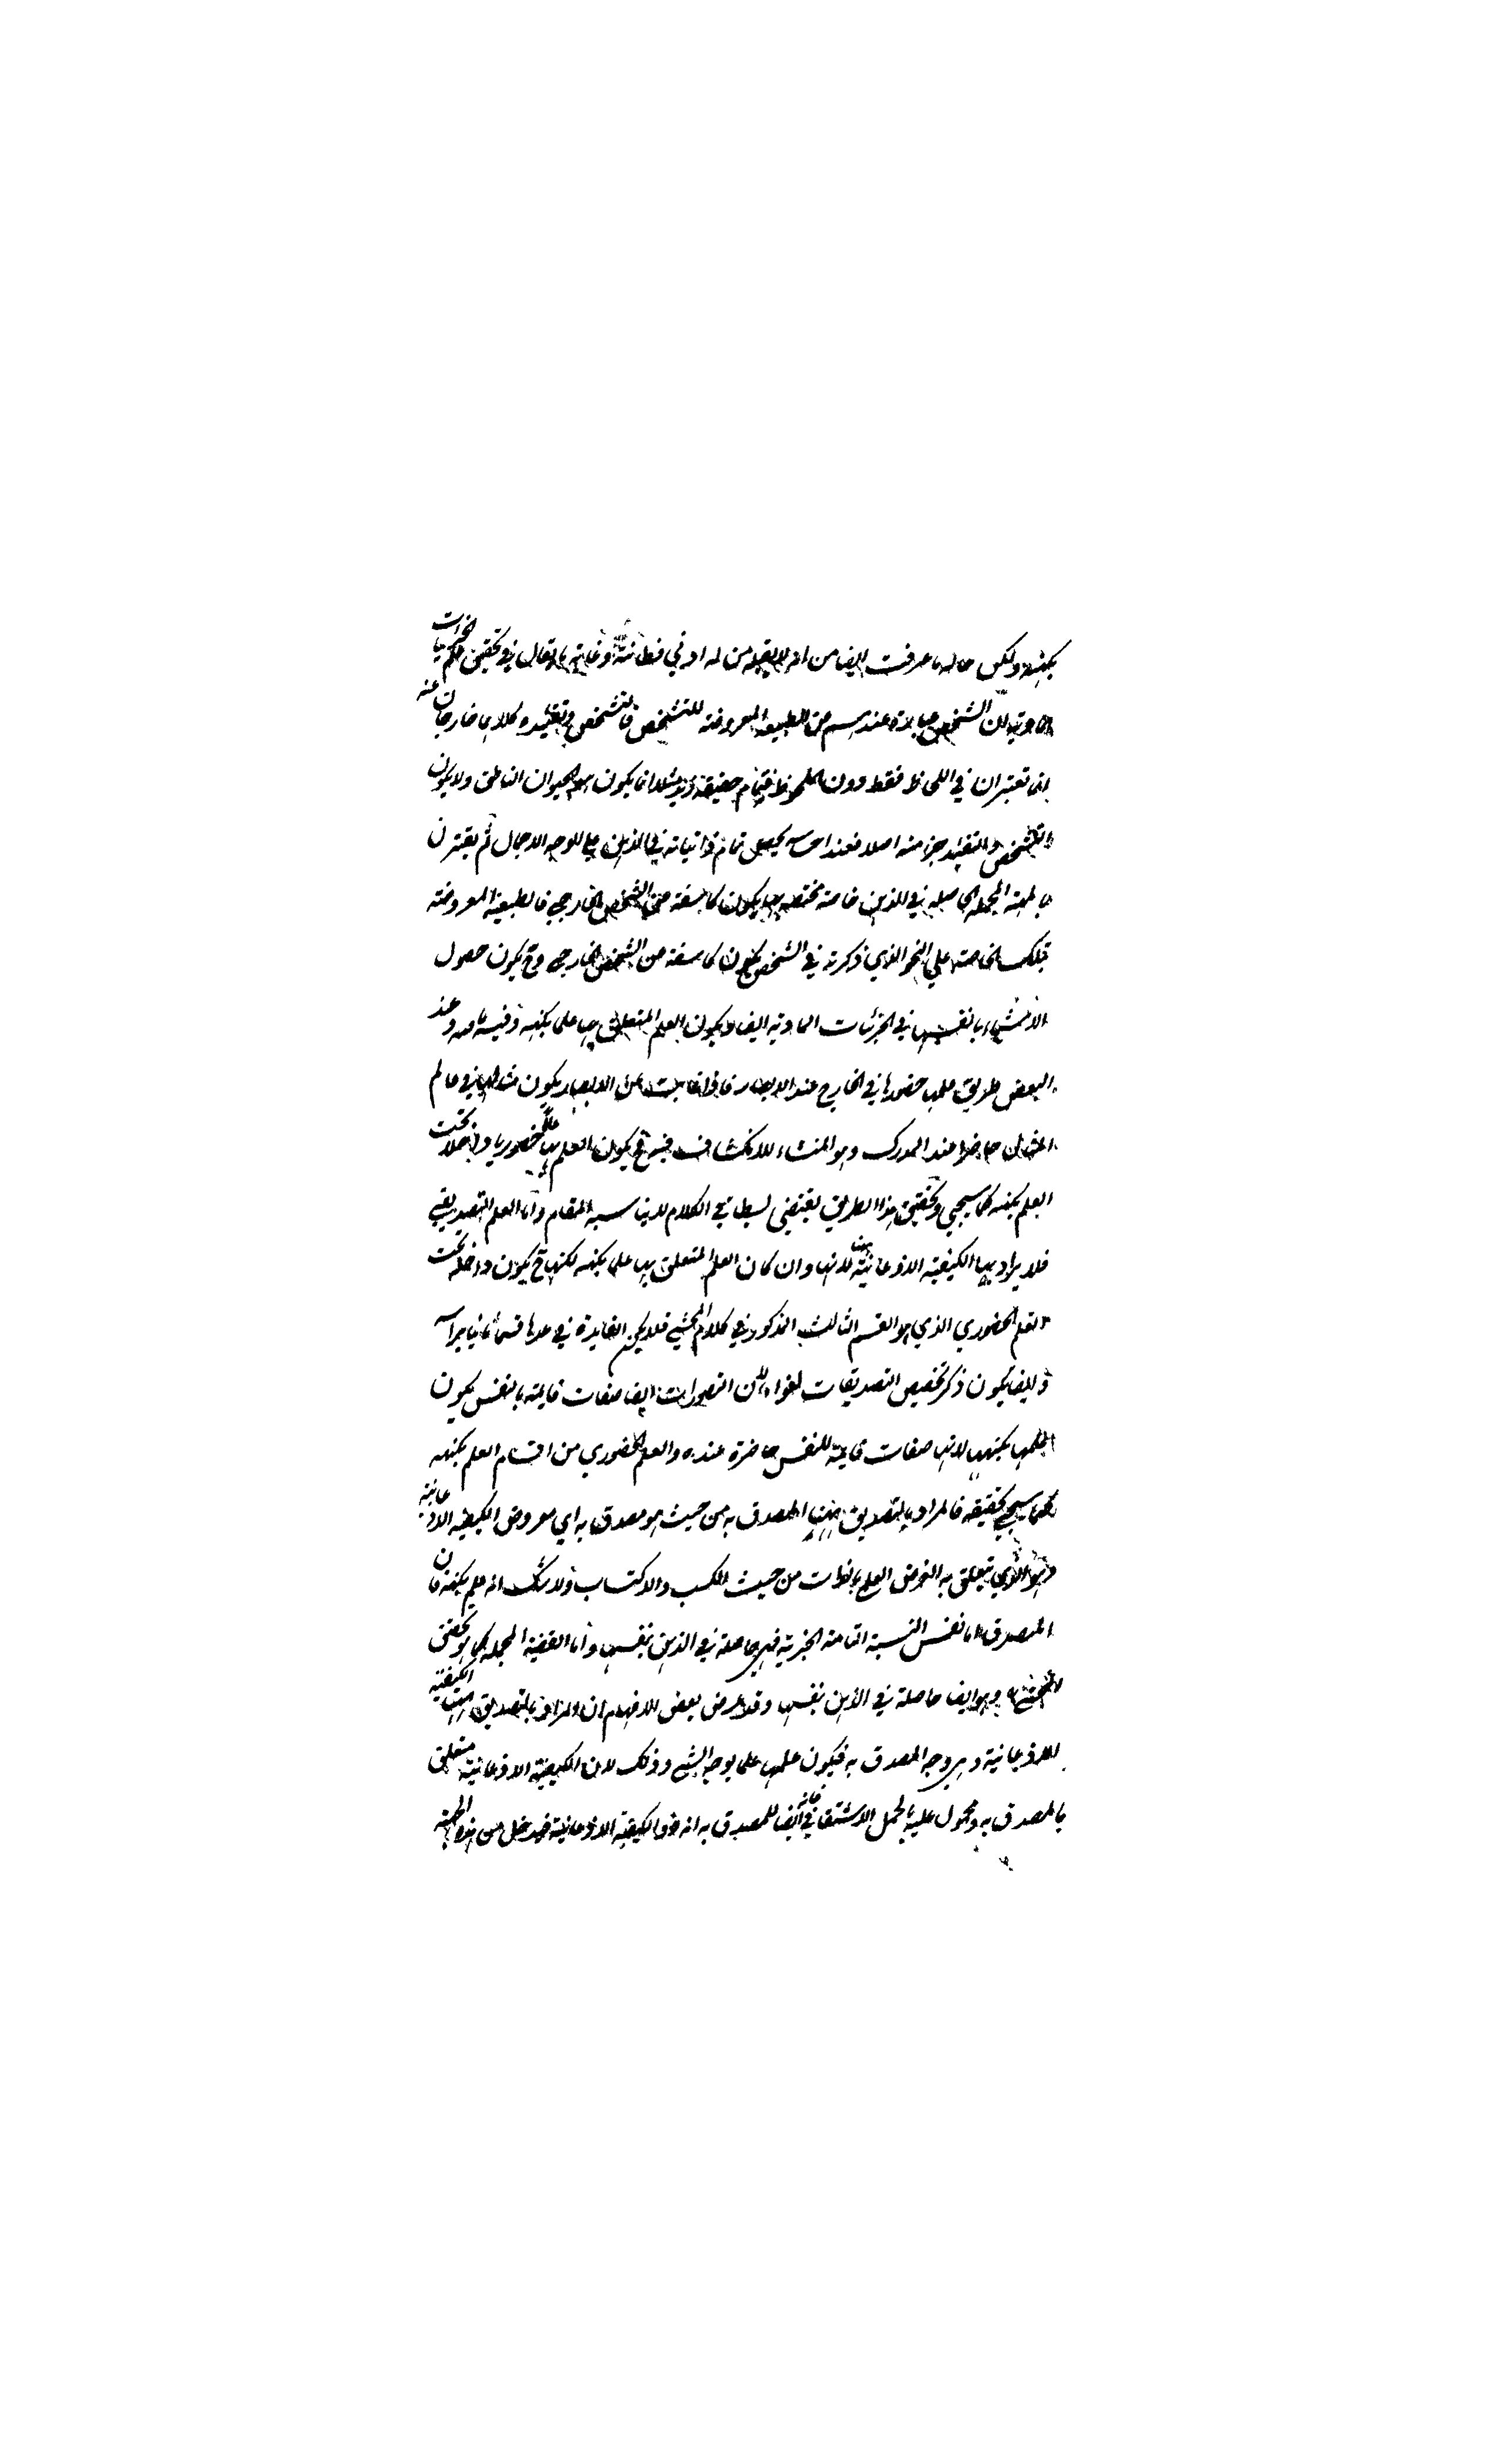 بكنهه ولكن حاله ما عرفت ايضا من انه لا يقبله من له ادنى فطانة وغاية ما يقال في تحقيق علم الجزئيات
المادية ان الشخص عبارة عندهم من الطبيعة المعروضة للتشخص فالتشخص وتقيده كلاهما خارجان عنه
انما تعتبران في اللحاظ فقط دون الملحوظ فتمام حقيقة زيد مثلا انما يكون هو الحيوان الناطق ولا يكون
التشخص والتقييد جزء منه اصلا فعند احساسه يحصل تمام ذاتياته في الذهن على الوجه الاجمال ثم يقترن
بالمهية المجملة الحاصلة في الذهن خاصة مختصة بها يكون كاشفة عن الشخص الخارجي فالطبيعة المعروضة
بتلك الخاصة على النحو الذي ذكرته في الشخص يكون كاشفة من الشخص الخارجي وح يكون حصول
الاشياء بانفسها في الجزئيات المادية ايضا ويكون العلم المتعلق بها علما بكنهه وفيه ما فيه وعند
البعض طريق علمها حضورها في الخارج عند الابصار فاذا غابت عن الابصار يكون مثالها في عالم
المثال حاضرا عند المدرك وهو المنشاء للانكشاف فح يكون العلم بها علما حضوريا وداخلا تحت
العلم بكنهه كما سيجي وتحقيق هذا الطريق يقتضي بسطا في الكلام لا يناسبه المقام واما العلم التصديقي
فلا يراد بها الكيفية الاذعانية ههنا لانها وان كان العلم المتعلق بها علما بكنهه لكنها ح يكون داخلة تحت
العلم الحضوري الذي هو القسم الثالث المذكور في كلام المحشي فلا يكن الفايدة في عدها قسما ثانيا براسه
وايضا يكون ذكر تخصيص التصديقات لغوا لان التصورات ايضا صفات قايمة بالنفس يكون
علمها بكنهها لانها صفات قايمة للنفس حاضرة عنده والعلم الحضوري من اقسام العلم بكنهه
كما سيجي تحقيقه فالمراد بالتصديق ههنا المصدق به من حيث هو مصدق به اي معروض الكيفية الاذعانية
وهو الذي يتعلق به الغرض العلمي بالذات من حيث الكسب والاكتساب ولا شك انه علم بكنهه فان
المصدق اما نفس النسبة التامة الخبرية فهي حاصلة في الذهن بنفسها واما القضية المجملة كما هو تحقيق
المحشي وهو ايضا حاصلة في الذهن بنفسها وقد عرض بعض الافهام ان المراد بالتصديق ههنا الكيفية
الاذعانية وهي وجه المصدق به فيكون علمها علما بوجه الشي وذلك لان الكيفية الاذعانية متعلق
بالمصدق به ومحمول عليه بالحمل الاشتقاقي فانه ايضا للمصدق به انه ذو الكيفية الاذعانية فيدخل من هذه الجهة